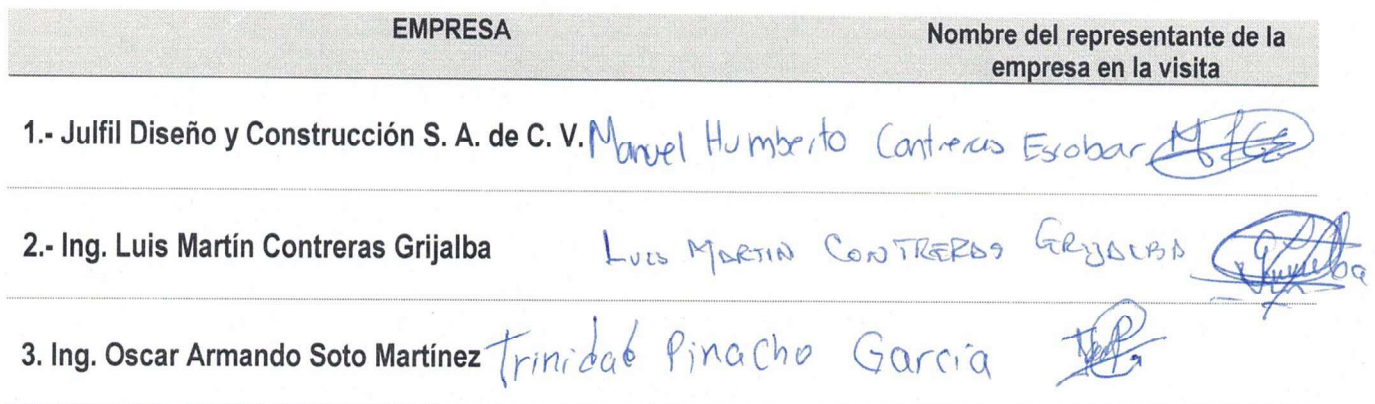 EMPRESA Nombre del representante de la
empresa en la visita
1.- Julfil Diseño y Construcción S. A. de C. V. Manuel Humberto Contreras Escobar
2.- Ing. Luis Martín Contreras Grijalba LUIS MARTIN CONTRERAS GRIJALBA
3. Ing. Oscar Armando Soto Martínez Trinidad Pinacho García